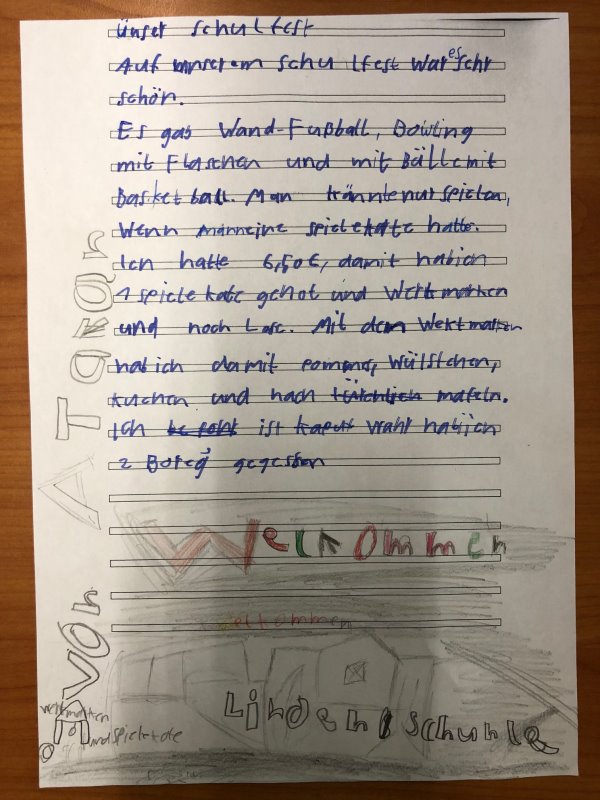 ünser schulfest
Auf unserem schulfest war es sehr
schön.
Es gab Wand-Fußball, Bowling
mit Flaschen und mit Bälle mit
Basketball. Man könnte nur spielen,
wenn man eine spielekate hatte.
Ich hatte 6,50€, damit habich
1 spielekate geholt und Wertmarken
und noch Lose. Mit dem Wertmarken
habich damit pommes, Würstchen,
kuchen und nach mafeln.
Ich ist kaput wahr habijch
2 Boreg gegessen
Welkommen
welkommen
Lindenschuhle
von ATaran
wertmarken
und spielekate